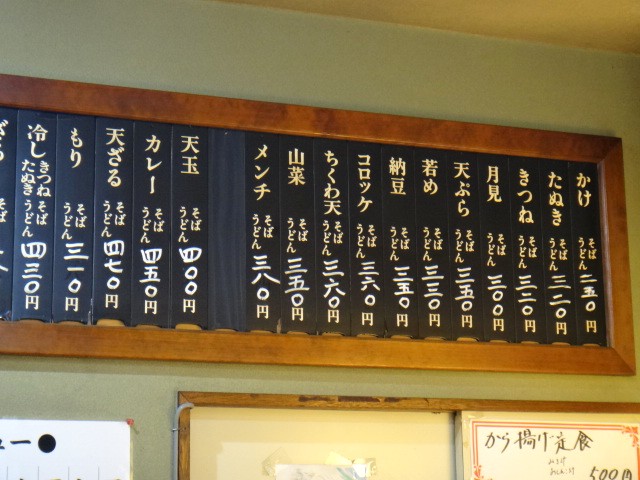 かけ そば うどん 二五〇円
たぬき そば うどん 三二〇円
きつね そば うどん 三二〇円
月見 そば うどん 三〇〇円
天ぷら そば うどん 三五〇円
若め そば うどん 三三〇円
納豆 そば うどん 三五〇円
コロッケ そば うどん 三六〇円
ちくわ天 そば うどん 三六〇円
山菜 そば うどん 三五〇円
メンチ そば うどん 三八〇円
天玉 そば うどん 四〇〇円
カレー そば うどん 四五〇円
天ざる そば うどん 四七〇円
もり そば うどん 三一〇円
冷し きつね たぬき そば うどん 四三〇円
ュー●
から揚げ定食
みそ汁
おしんこ付
500円